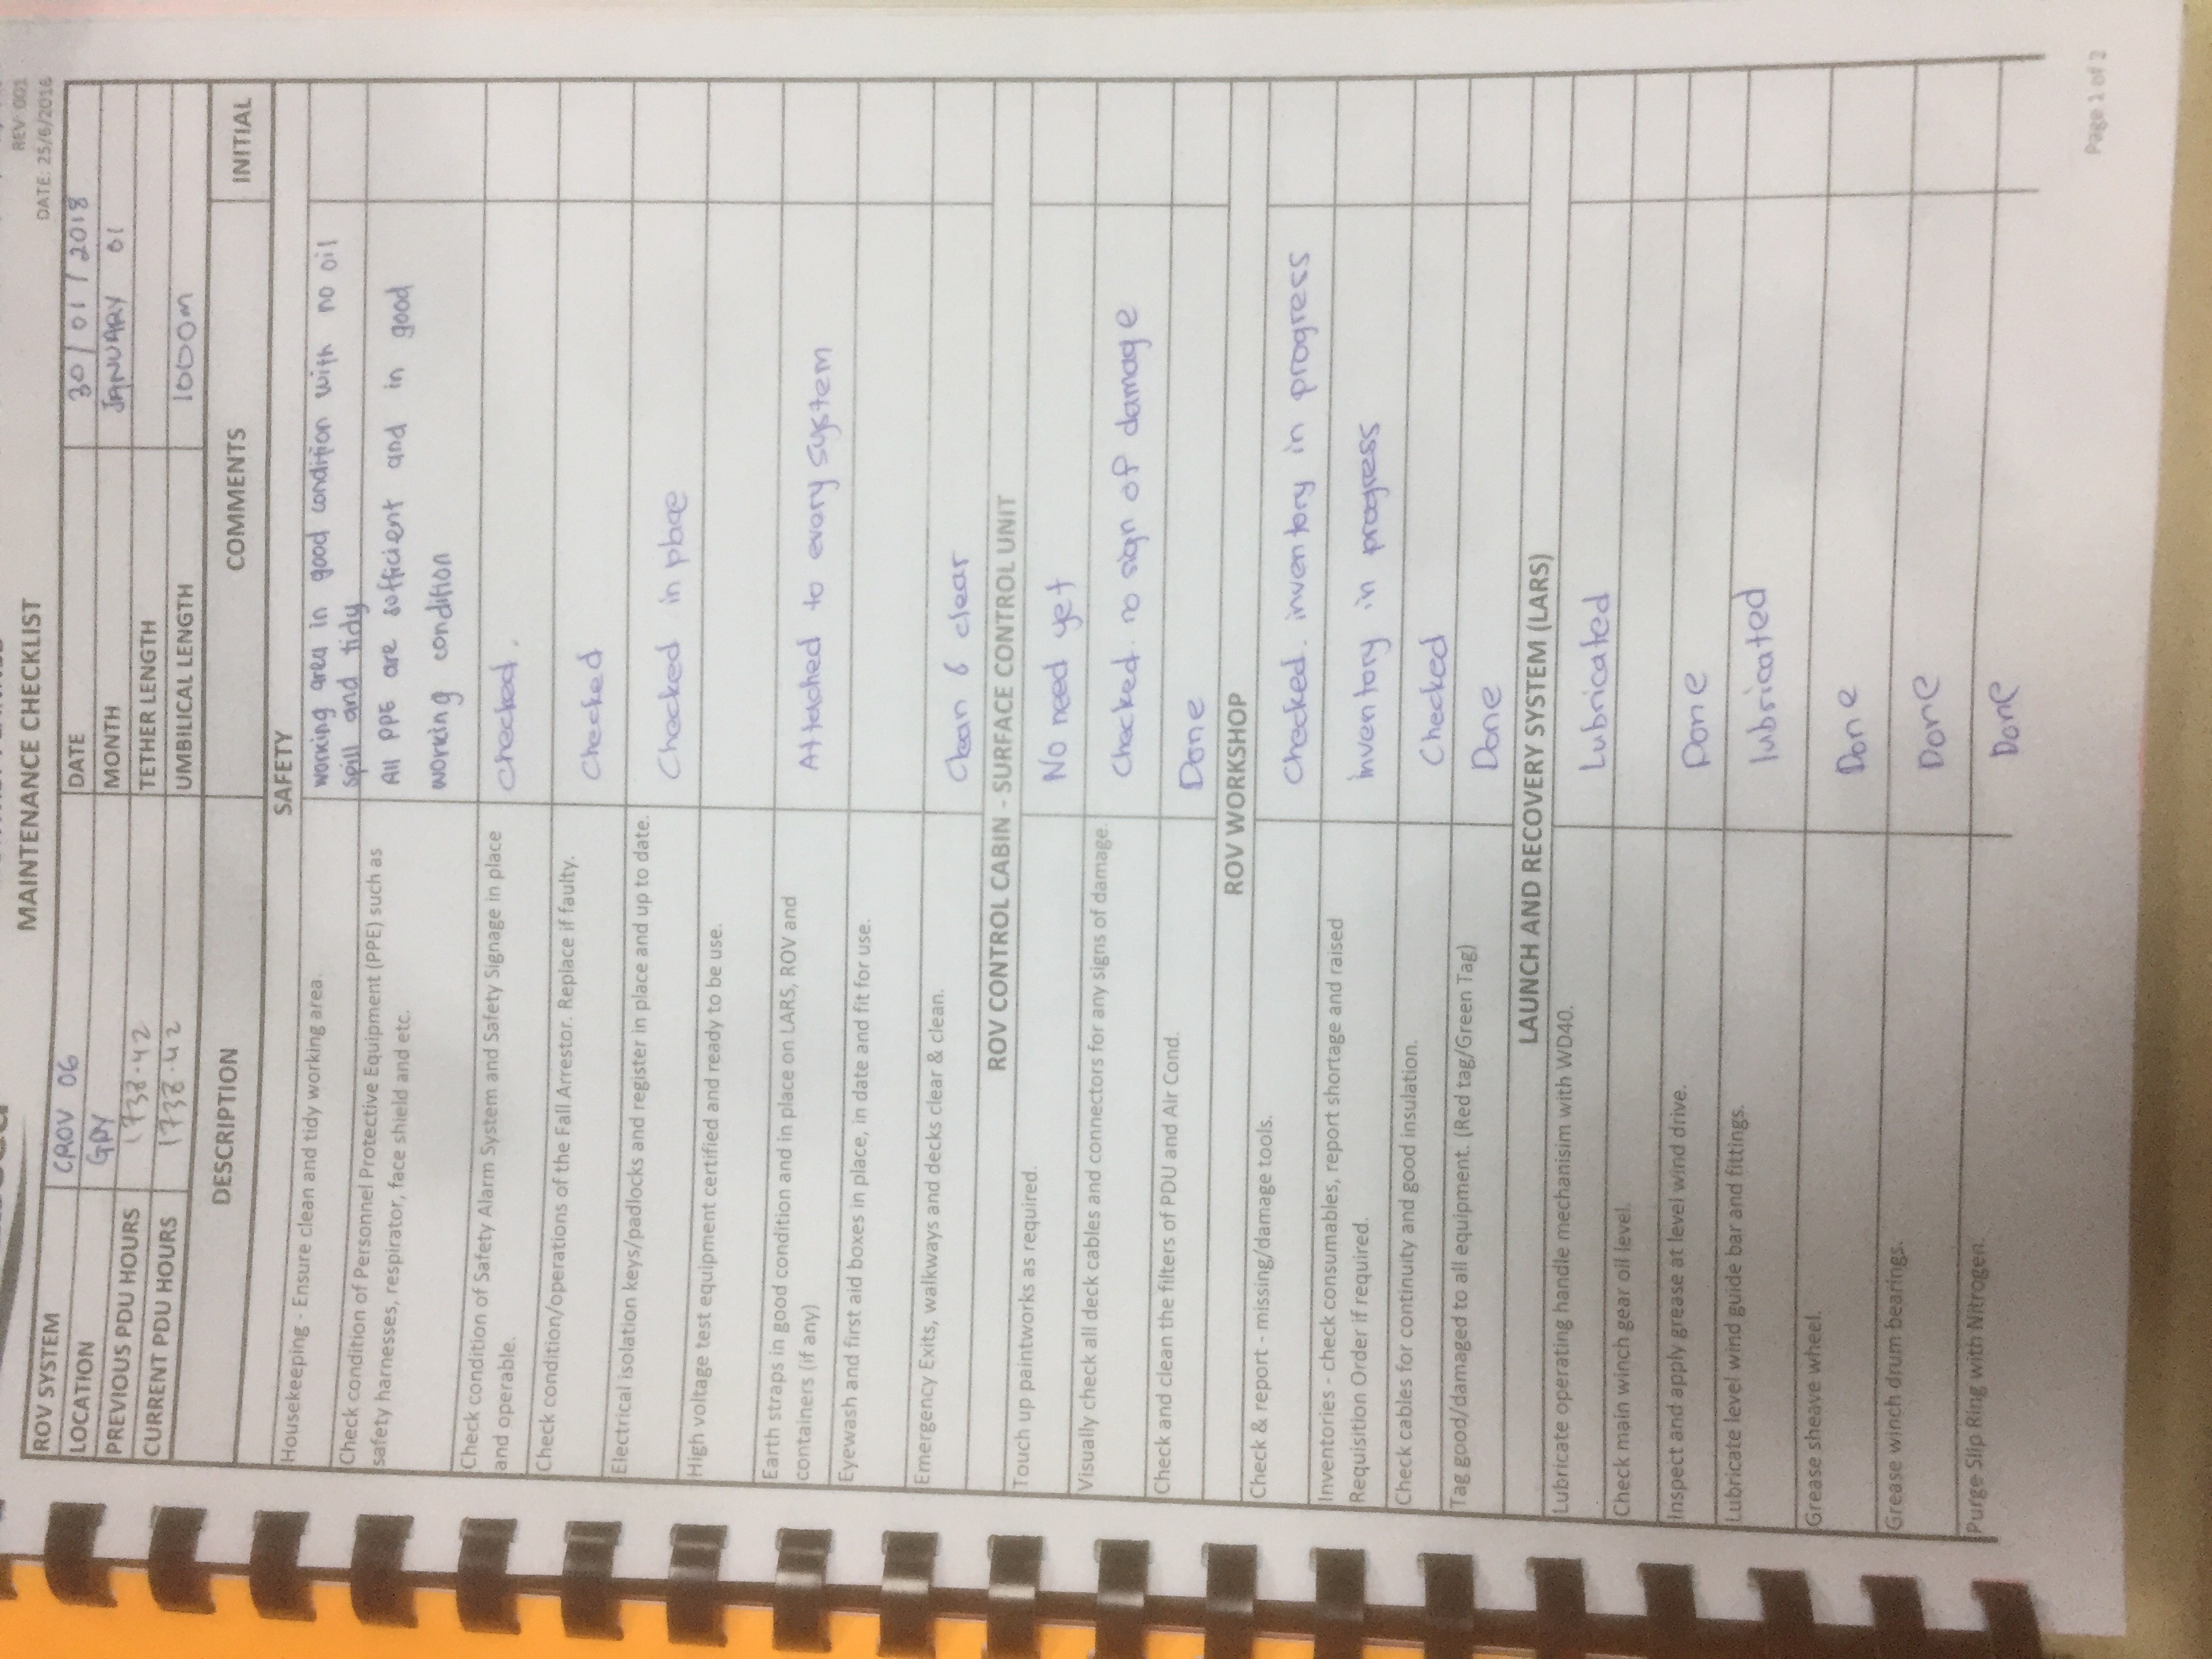 MAINTENANCE CHECKLIST
REV 001
DATE: 25/6/2016
ROV SYSTEM CROV 06 DATE 30/01/2018
LOCATION GPY MONTH JANUARY 01
PREVIOUS PDU HOURS 1738.42 TETHER LENGTH
CURRENT PDU HOURS 1738.42 UMBILICAL LENGTH 1000m
DESCRIPTION COMMENTS INITIAL
SAFETY
Housekeeping - Ensure clean and tidy working area.
working area in good condition with no oil
spill and tidy
Check condition of Personnel Protective Equipment (PPE) such as
safety harnesses, respirator, face shield and etc.
All PPE are sufficient and in good
working condition
Check condition of Safety Alarm System and Safety Signage in place
and operable.
checked.
Check condition/operations of the Fall Arrestor. Replace if faulty.
Checked
Electrical isolation keys/padlocks and register in place and up to date.
Checked in place
High voltage test equipment certified and ready to be use.
Earth straps in good condition and in place on LARS, ROV and
containers (if any)
Attached to every system
Eyewash and first aid boxes in place, in date and fit for use.
Emergency Exits, walkways and decks clear & clean.
Clean & clear
ROV CONTROL CABIN - SURFACE CONTROL UNIT
Touch up paintworks as required.
No need yet
Visually check all deck cables and connectors for any signs of damage.
Checked. no sign of damage
Check and clean the filters of PDU and Air Cond.
Done
ROV WORKSHOP
Check & report - missing/damage tools.
Checked. inventory in progress
Inventories - check consumables, report shortage and raised
Requisition Order if required.
inventory in progress
Check cables for continuity and good insulation.
Checked
Tag good/damaged to all equipment. (Red tag/Green Tag)
Done
LAUNCH AND RECOVERY SYSTEM (LARS)
Lubricate operating handle mechanisim with WD40.
Lubricated
Check main winch gear oil level.
Inspect and apply grease at level wind drive.
Done
Lubricate level wind guide bar and fittings.
lubricated
Grease sheave wheel.
Done
Grease winch drum bearings.
Done
Purge Slip Ring with Nitrogen.
Done
Page 1 of 2